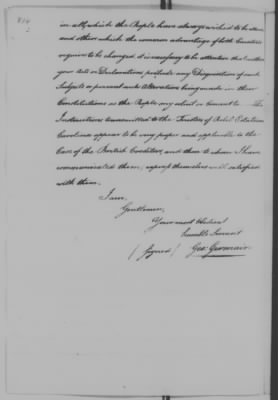 in all, which the People have always wished to be
and others which the common advantage of both Countries
require to be changed it is necessary to be attentive that neither
your Acts or Declarations preclude any Disquisition of such
Subjects or prevent such Alterations being made in their
Constitutions as the People may solicit or Consent to. The
Instructions transmitted to the Trustees of Rebel Estates in
Carolina appear to be very proper and applicable to the
Case of the Creditors, and those to whom I have
communicated them, express themselves well satisfied
with them.
I am,
Gentlemen,
Your most Obedient
humble Servant
(Signed) Geo: Germain